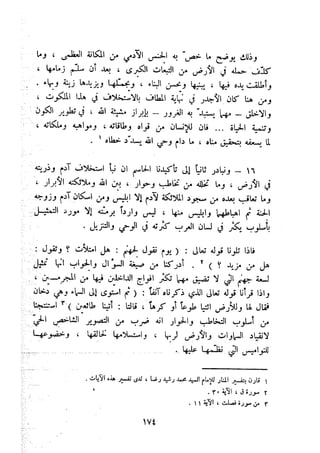 وذلك يوضح ما خص به الجنس الآدمي من المكانة العظمى ، وما
كلف حمله في الأرض من التبعات الكبرى ، بعد أن سلم زمامها ،
وأطلقت يده فيها ، يبنيها ويحسن البناء ، ويجملها ويزيدها زينة وبهاء .
ومن هنا كان الأجدر في نهاية المطاف بالاستخلاف في هذا الملكوت ،
والأخلق — مهما يستبد به الغرور — بإبراز مشيئة الله ، في تطوير الكون
وتنمية الحياة ... فان للإنسان من قواه وطاقاته ، ومواهبه وملكاته ،
ما يسعفه بتحقيق مناه ، ما دام وحي الله يسدد خطاه ١ .
١٦ — ونبادر ثانياً إلى تأكيدنا الحاسم ان نبأ استخلاف آدم وذريته
في الأرض ، وما تخلله من تخاطب وحوار ، بين الله وملائكته الأبرار ،
وما تعاقب بعده من سجود الملائكة لآدم إلا ابليس ومن اسكان آدم وزوجه
الجنة ثم اهباطهما وابليس منها ، ليس وارداً برمته إلا مورد التمثيل
بأسلوب يكثر في لسان العرب كثرته في الوحي والتنزيل .
فاذا تلونا قوله تعالى : ( يوم نقول لجهنم : هل امتلأت ؟ وتقول :
هل من مزيد ؟ ) ٢ . أدركنا من صيغة السؤال والجواب أنها تمثيل
لسعة جهنم التي لا تضيق مهما تكثر افواج الداخلين فيها من المجرمين ،
واذا قرأنا قوله تعالى الذي ذكرناه آنفاً : ( ثم استوى إلى السماء وهي دخان
فقال لها وللأرض ائتيا طوعاً أو كرهاً ، قالتا : أتينا طائعين ) ٣ استنتجنا
من أسلوب التخاطب والحوار انه ضرب من التصوير الشاخص الحي
لانقياد السماوات والأرض لربها ، واستسلامها لخالقها ، وخضوعها
للنواميس التي نظمها عليها .
١ قارن بتفسير المنار للإمام السيد محمد رشيد رضا ، لدى تفسير هذه الآيات .
٢ سورة ق ، الآية ٣٠ .
٣ من سورة فصلت ، الآية ١١ .
١٧٤